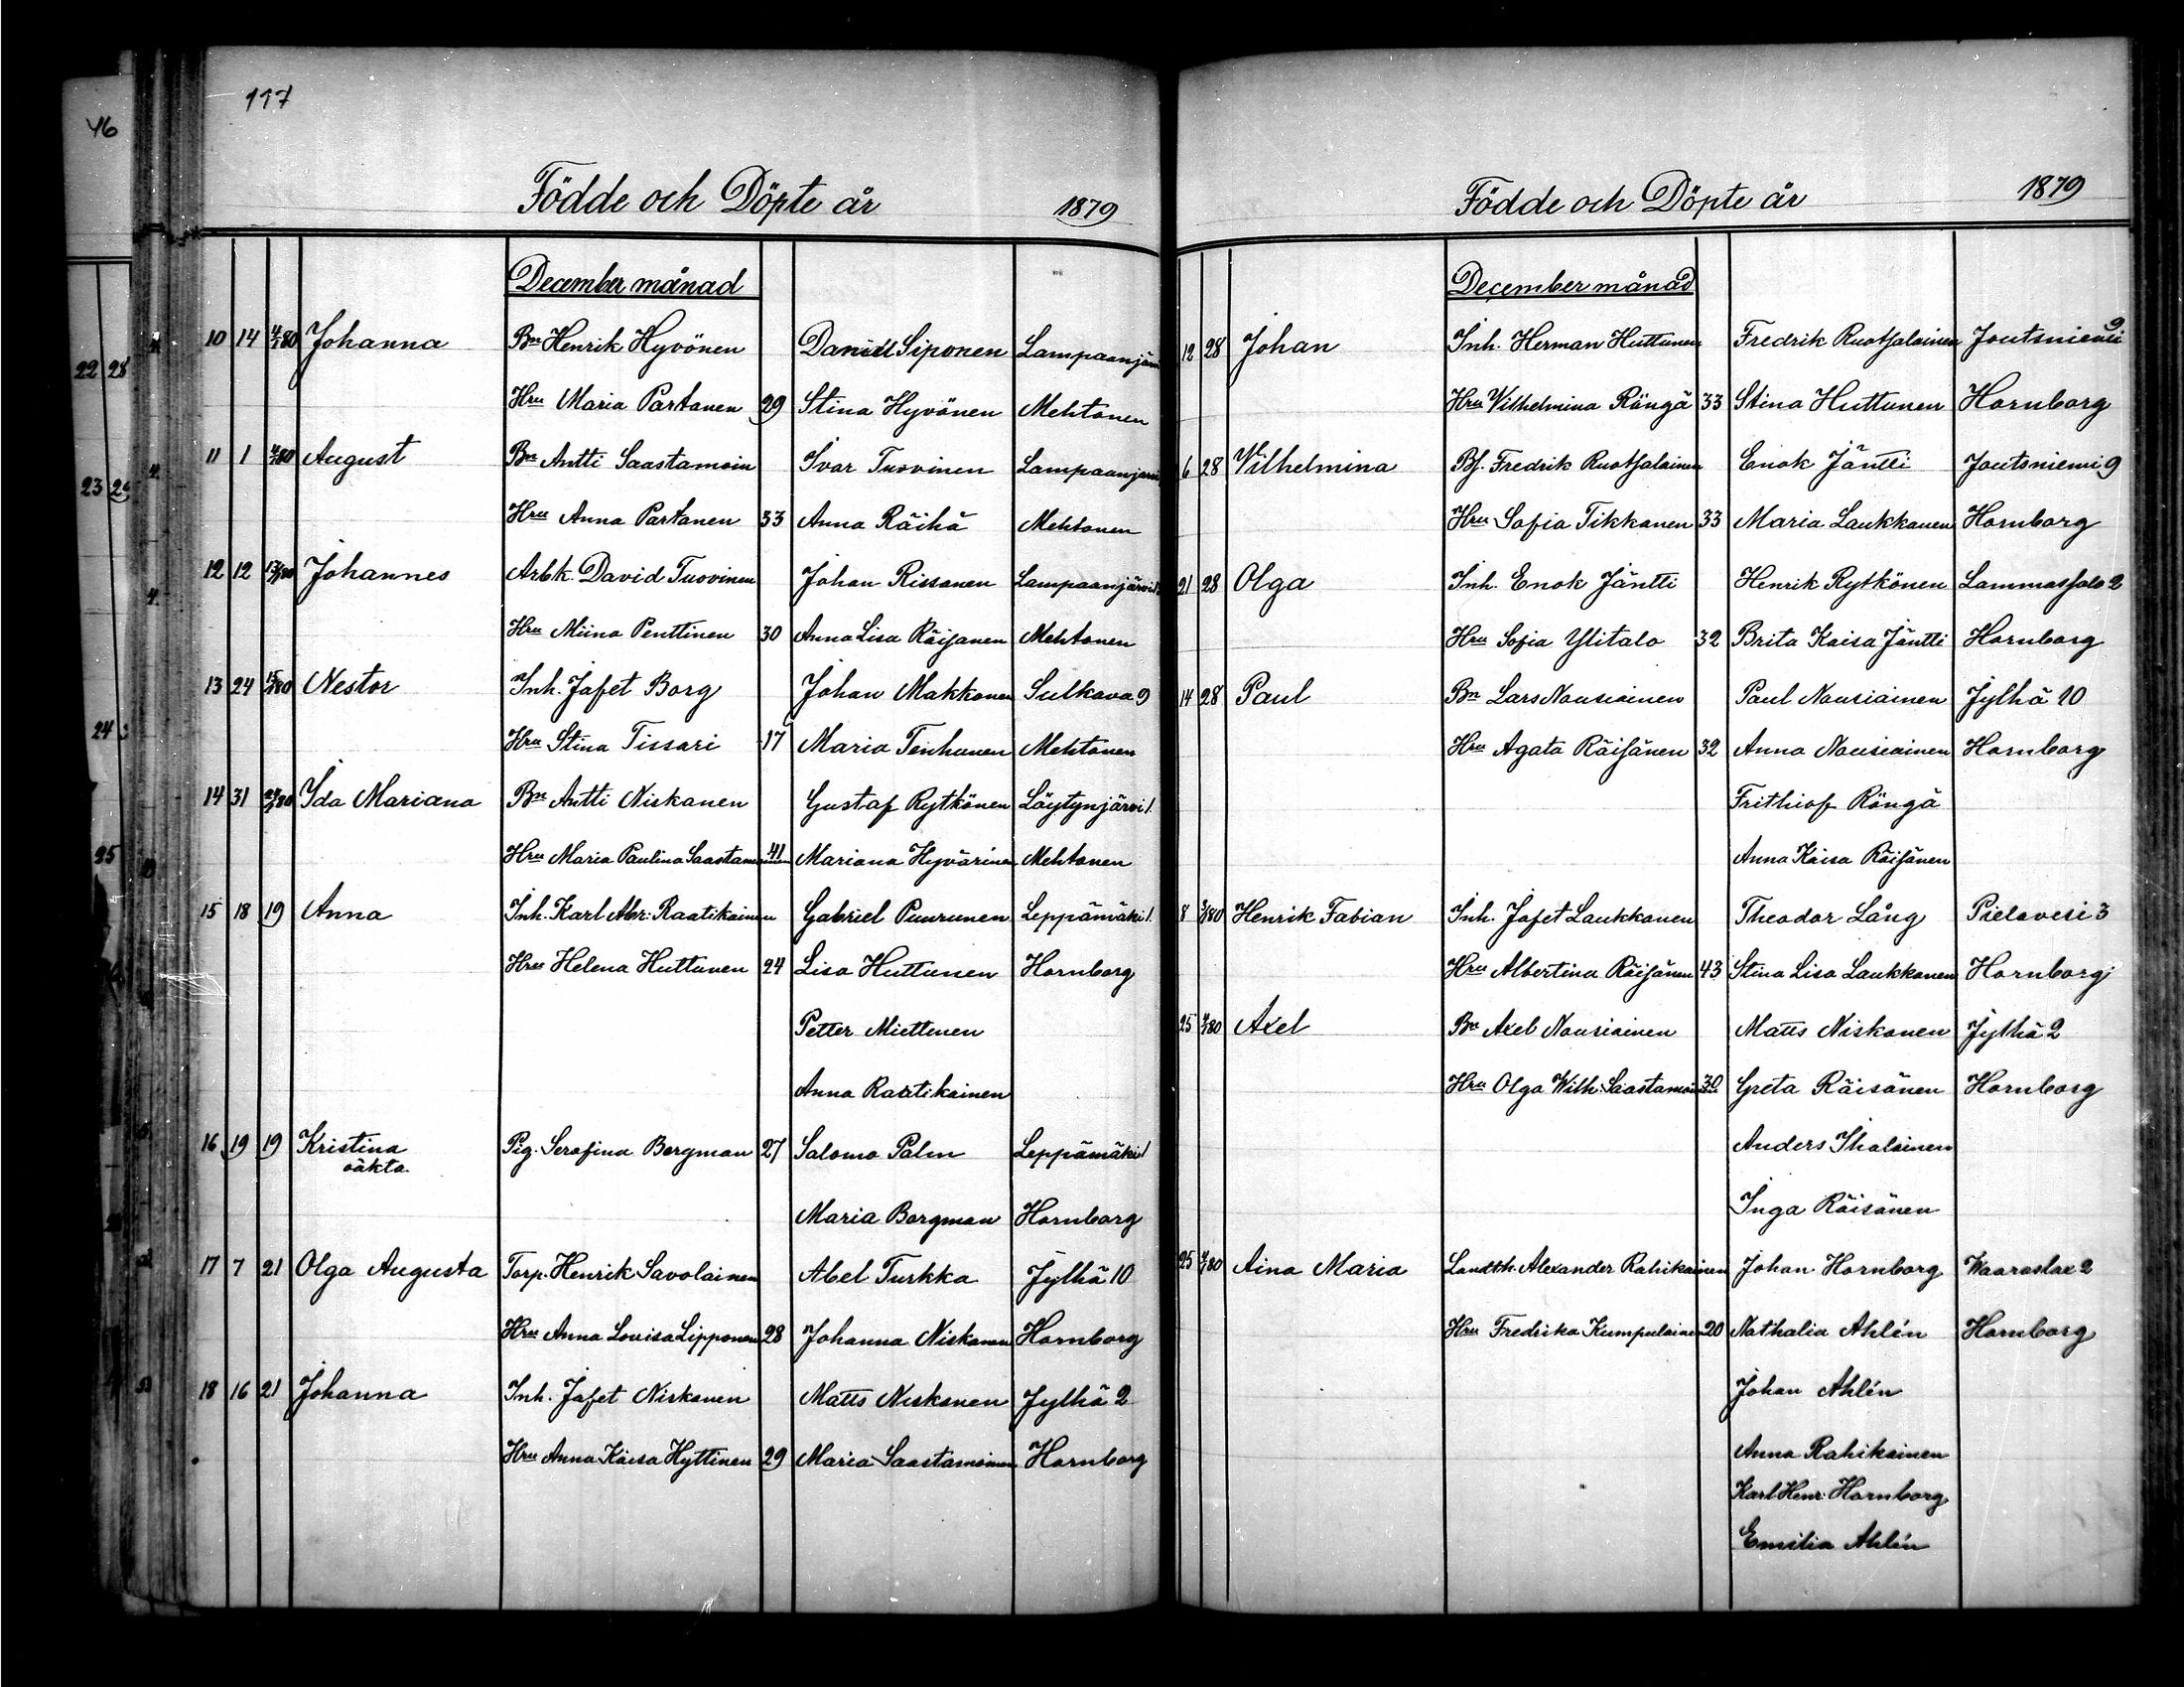 117
46
Födde och Döpte år 1879
December månad
10 14 4/1 80 Johanna Bn Henrik Hyvönen Daniel Siponen Lampaanjärvi
Hru Maria Partanen 29 Stina Hyvönen Mehtonen
11 1 4/1 80 August Bn Antti Saastamoin Ivar Tuovinen Lampaanjärvi
Hru Anna Partanen 33 Anna Räihä Mehtonen
12 12 Johannes Arbk. David Tuovinen Johan Rissanen Lampaanjärvi
Hru Miina Penttinen 30 Anna Lisa Räisänen Mehtonen
13 24 Nestor Inh. Jafet Borg Johan Makkonen Sulkava 9
Hru Stina Tissari 17 Maria Tenhunen Mehtonen
14 31 Ida Mariana Bn Antti Niskanen Gustaf Rytkönen Löytynjärvi 1.
Hru Maria Paulina Saastamoinen 41 Mariana Hyvärinen Mehtonen
15 18 19 Anna Inh. Karl Abr: Raatikainen Gabriel Puurunen Leppämäki 1.
Hru Helena Huttunen 24 Lisa Huttunen Hornborg
Petter Miettinen
Anna Raatikainen
16 19 19 Kristina Pig. Serafina Bergman 27 Salomo Palm Leppämäki 1
oäkta
Maria Borgman Hornborg
17 7 21 Olga Augusta Torp. Henrik Savolainen Abel Turkka Jylhä 10
Hru Anna Lovisa Lipponen 28 Johanna Niskanen Hornborg
18 16 21 Johanna Inh. Jafet Niskanen Matts Niskanen Jylhä 2
Hru Anna Kaisa Hyttinen 29 Maria Saastamoinen Hornborg
Födde och Döpte år 1879
December månad
12 28 Johan Inh. Herman Huttunen Fredrik Ruotsalainen Joutsniemi 9
Hru Wilhelmina Rängä 33 Stina Huttunen Hornborg
6 28 Wilhelmina Bf. Fredrik Ruotsalainen Enok Jäntti Joutsniemi 9
Hru Sofia Tikkanen 33 Maria Laukkanen Hornborg
21 28 Olga Inh. Enok Jäntti Henrik Rytkönen Lammassalo 2
Hru Sofia Ylitalo 32 Brita Kaisa Jäntti Hornborg
14 28 Paul Bn Lars Nousiainen Paul Nousiainen Jylhä 10
Hru Agata Räisänen 32 Anna Nousiainen Hornborg
Frithiof Rängä
Anna Kaisa Räisänen
8 3/1 80 Henrik Fabian Inh. Jafet Laukkanen Theodor Lång Pielavesi 3
Hru Albertina Räisänen 43 Stina Lisa Laukkanen Hornborg
25 4/1 80 Axel Bn Axel Nousiainen Matts Niskanen Jylhä 2
Hru Olga Wilh. Saastamoinen 30 Greta Räisänen Hornborg
Anders Ihalainen
Inga Räisänen
25 4/1 80 Aina Maria Landth. Alexander Rahikainen Johan Hornborg Waaraslax 2
Hru Fredrika Kumpulainen 20 Nathalia Ahlén Hornborg
Johan Ahlén
Anna Rahikainen
Karl Henr: Hornborg
Emilia Ahlén